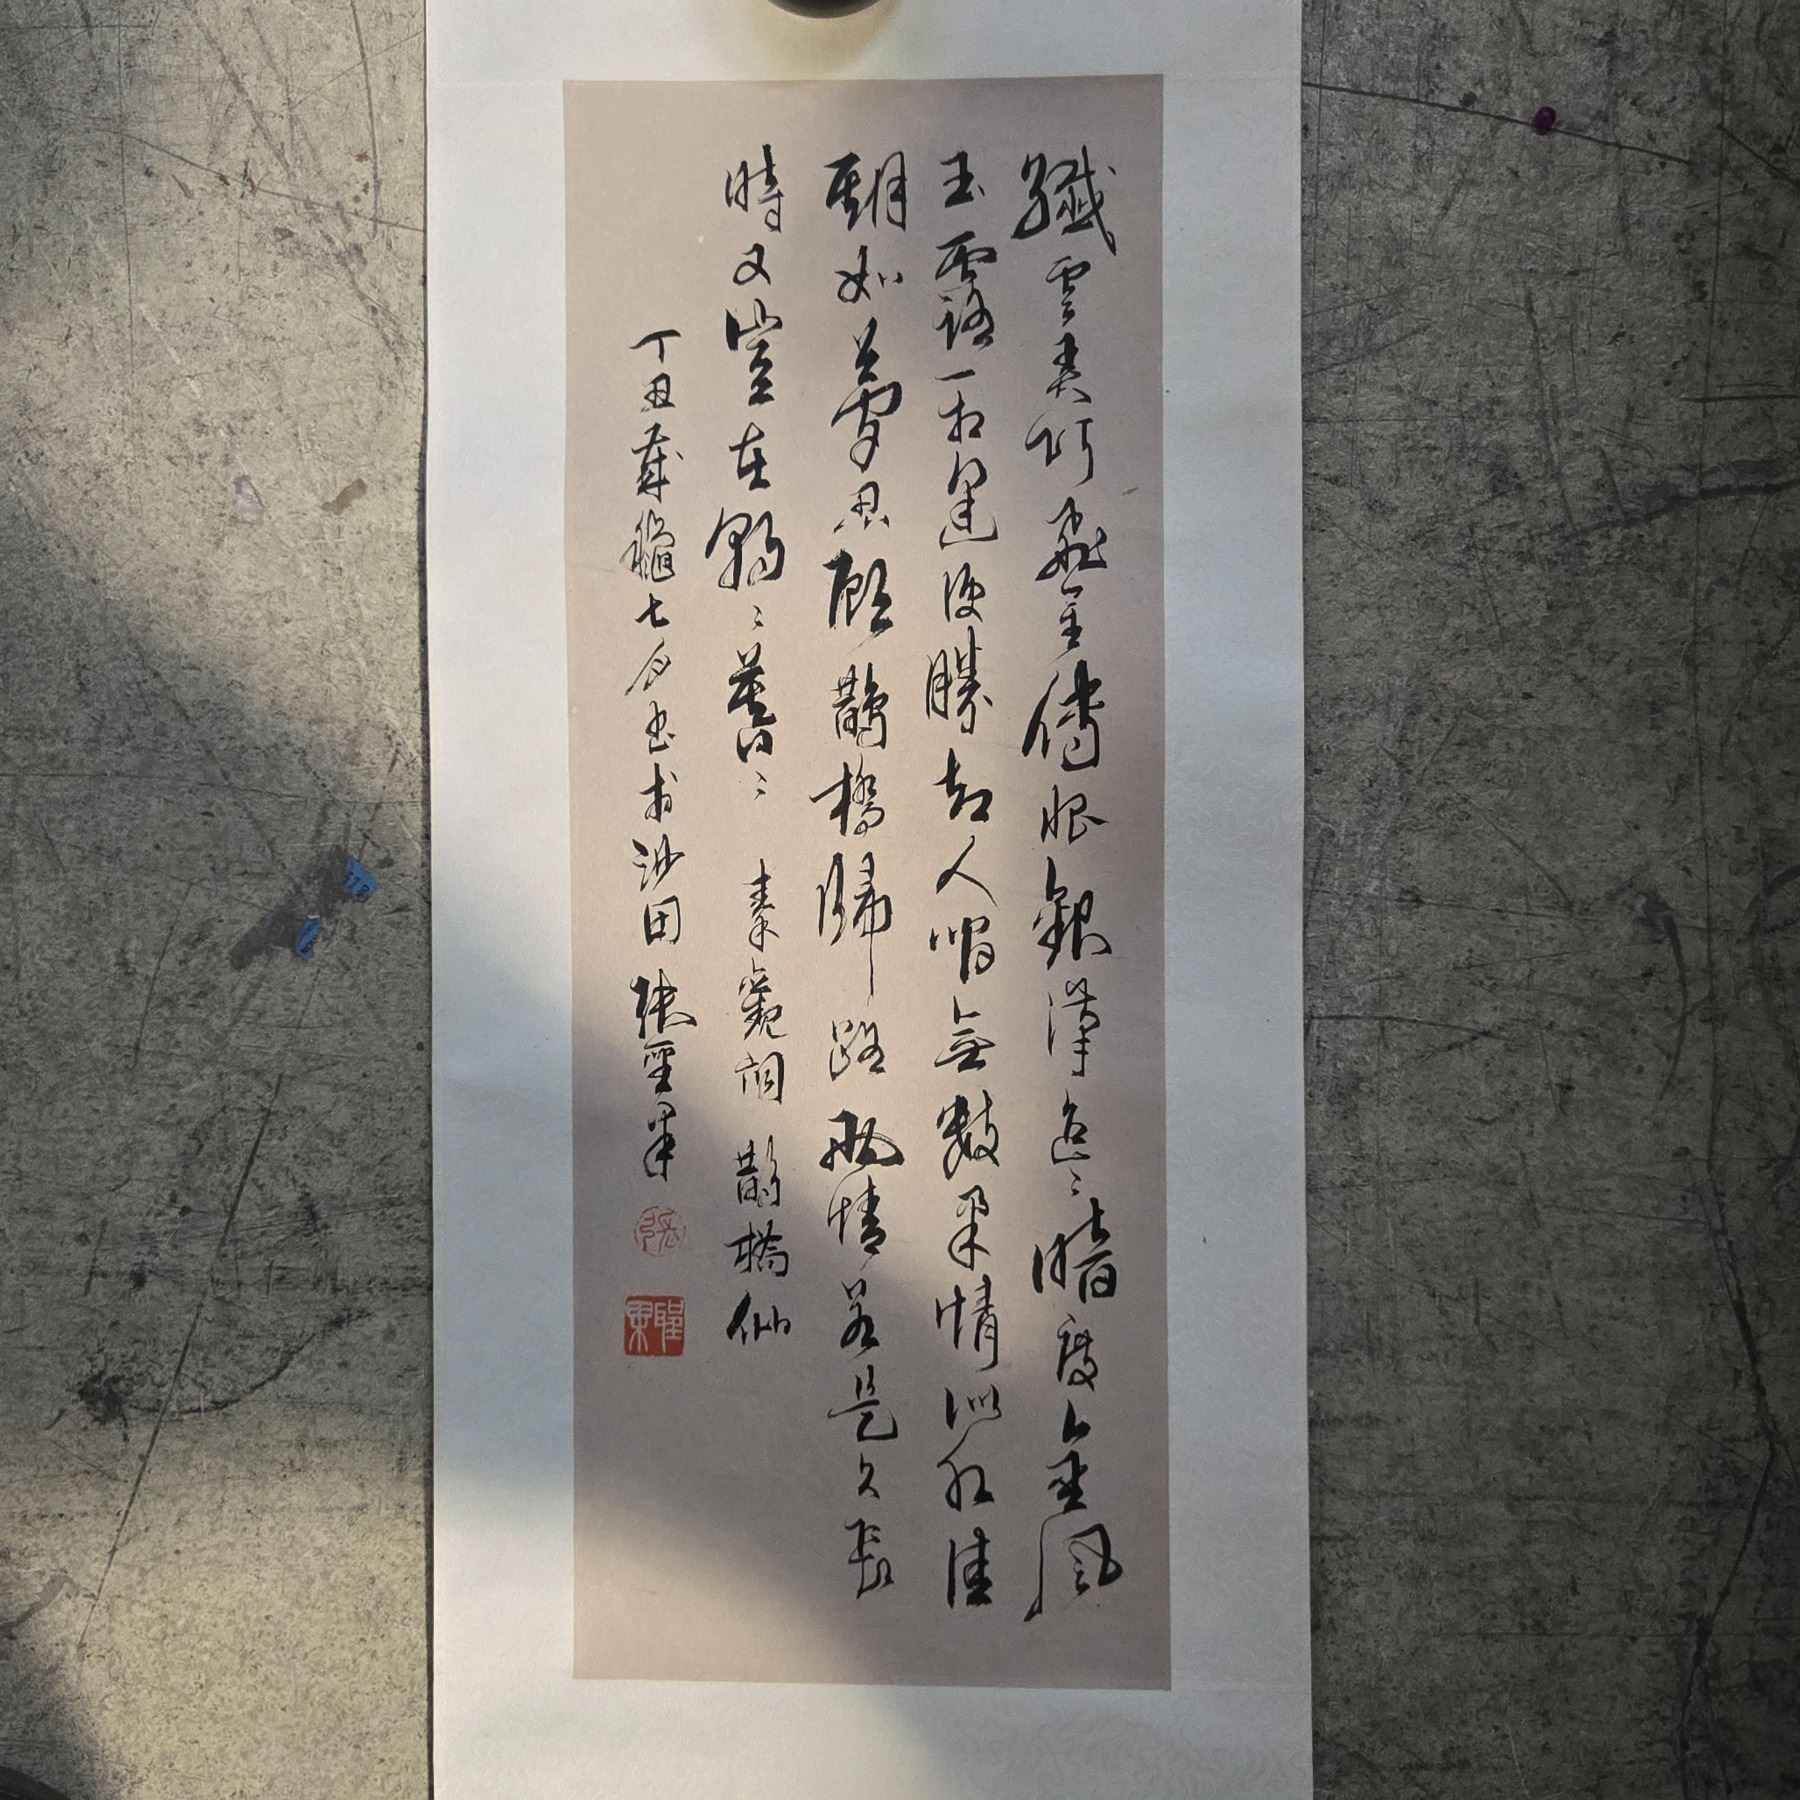 纖雲弄巧飛星傳恨銀漢迢〻暗度金風
玉露一相逢便勝却人間無數柔情似水佳
期如夢忍顧鵲橋歸路兩情若是久長
時又豈在朝〻暮〻 秦觀詞 鵲橋仙
丁丑歲龝七月書於沙田 張聖果
張
聖果